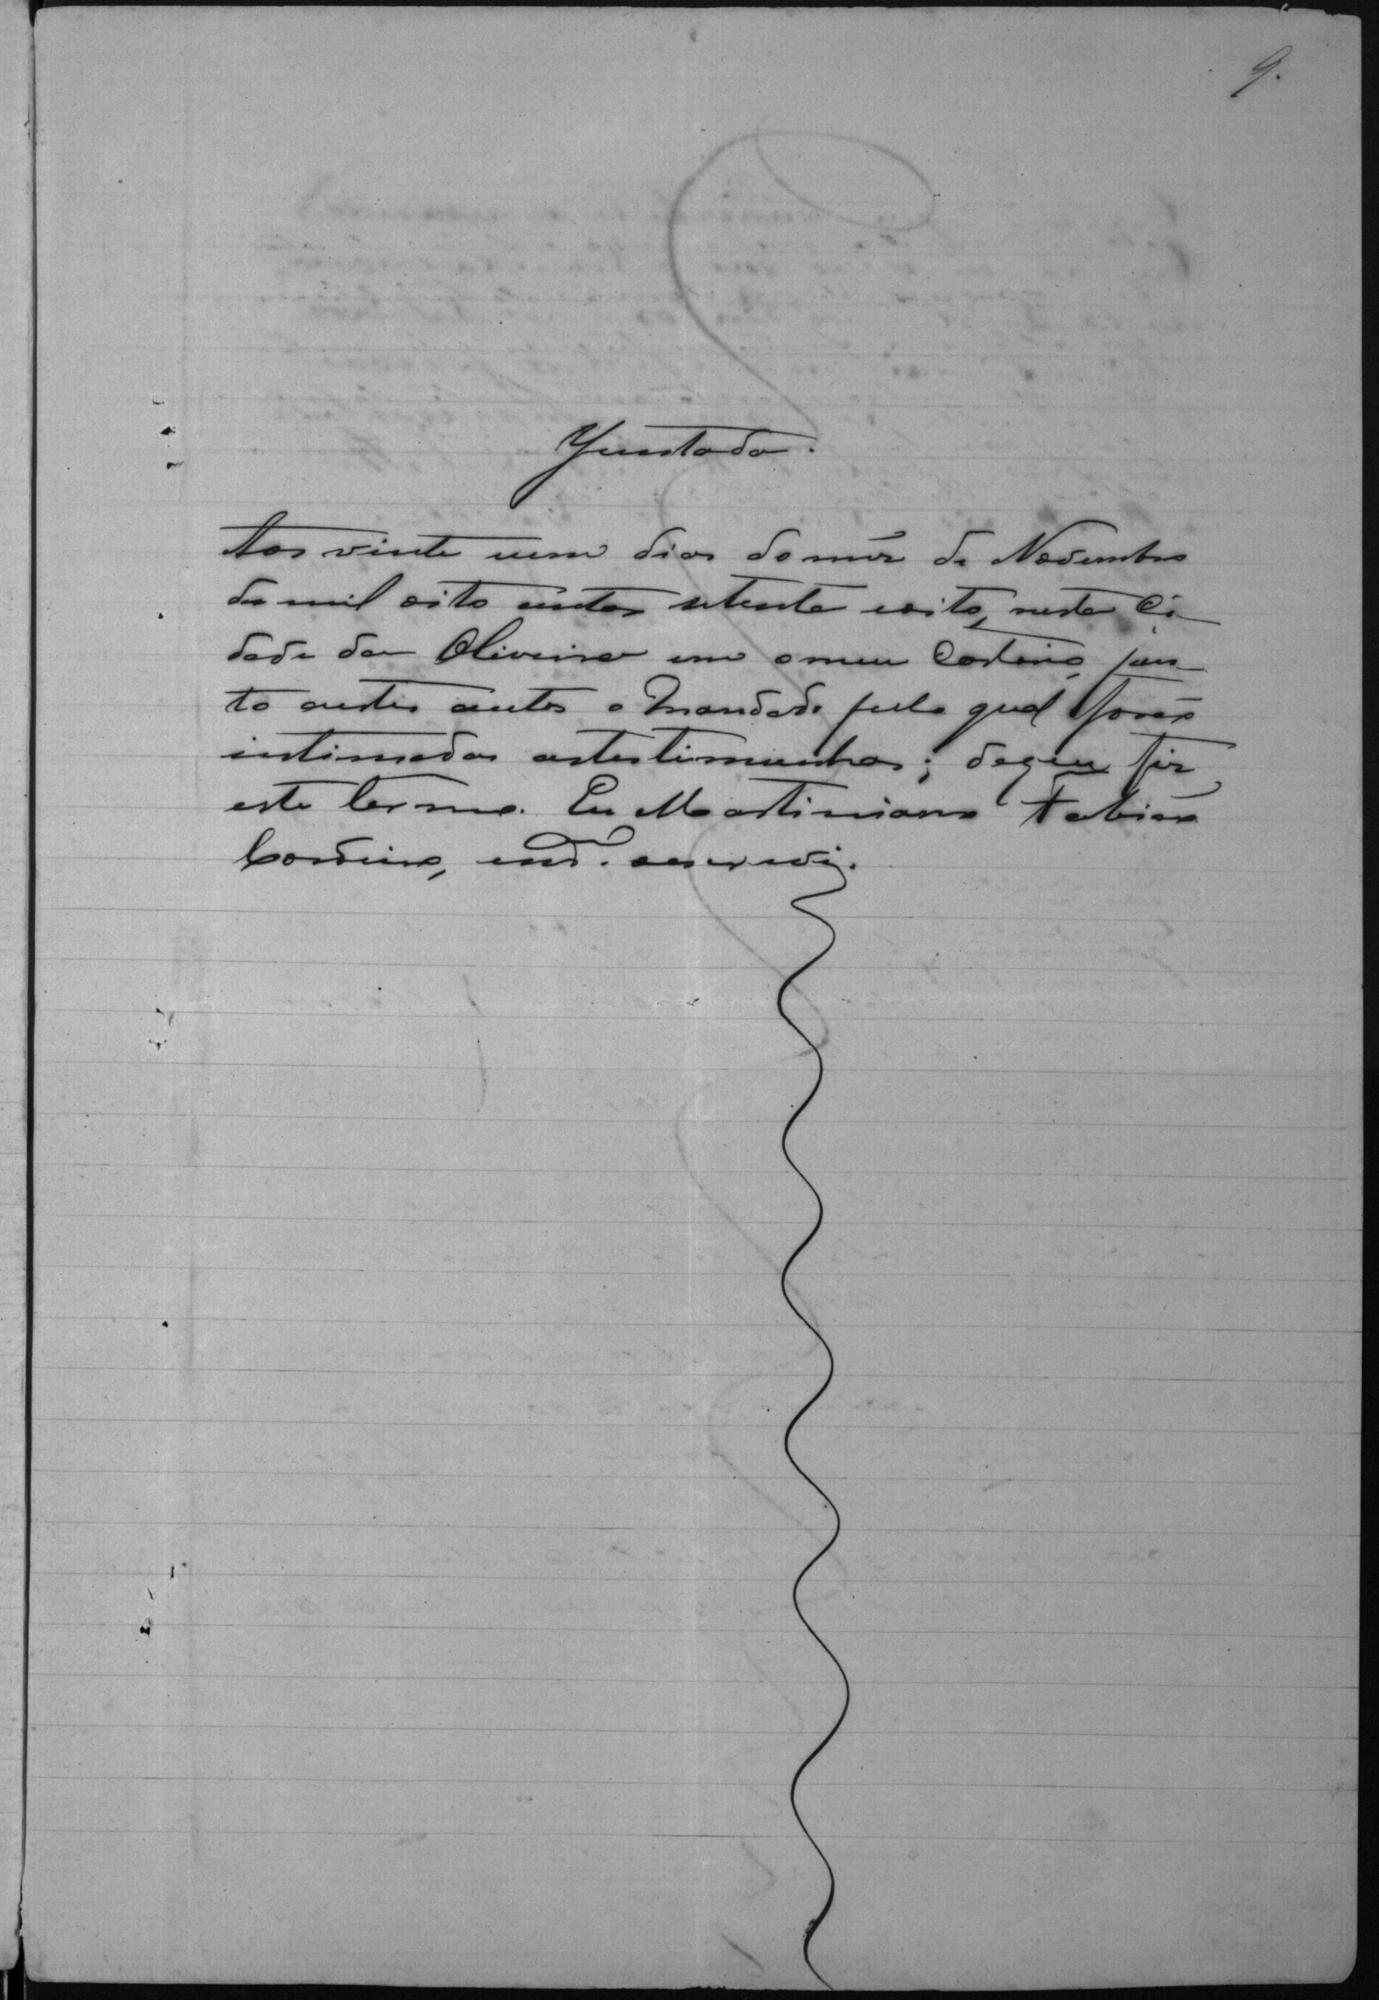 9.
Juntada.
Aos vinte um dias do mês de Novembro
de mil oito centos setenta e oito, nesta Ci-
dade da Oliveira em o meu Cartorio, jun-
to a estes autos o Mandado pelo qual forão
intimadas as testimunhas; de que fiz
este termo. Eu Martiniano Fabião
Cordeiro, escrevi.